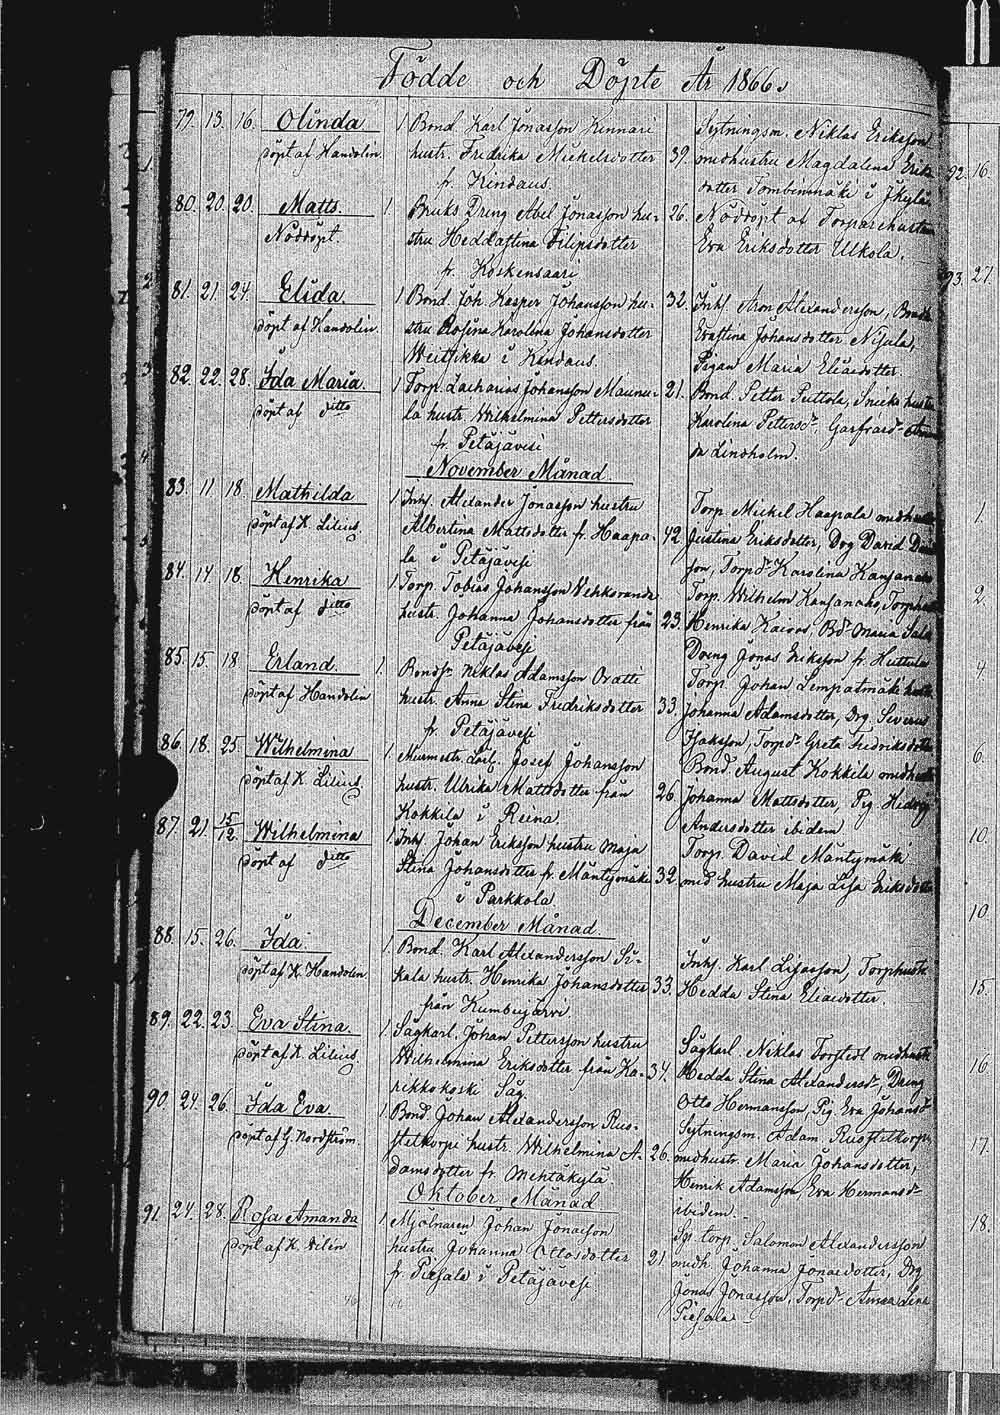 Födde och Döpte År 1866.
79. 13. 16. Olinda 1 Bond. Karl Jonasson Kinnari Sytningsm. Niklas Eriksson
döpt af Handolin hustr. Fredrika Mickelsdotter 39. med hustru Magdalena Eriks
fr. Kindaus. dotter Tombinmäki i Jkylä
80. 20. 20. Matts. 1. Bruks Dreng Abel Jonasson hu- 26. Nöddöpt af Torparehustrun
Nöddöpt. stru Hedda Stina Filipsdotter Eva Eriksdotter Ulkola.
fr. Koskensaari
81. 21. 24. Elida 1 Bond. Joh. Kasper Johansson hu- 32. Inhs. Aron Alexandersson, Bond
döpt af Handolin stru Rosina Karolina Johansdotter Evastina Johansdotter Nisula,
i Kindaus. Pigan Maria Eliaedotter.
82. 22. 28. Ida Maria. 1 Torp. Zacharias Johansson Maunu- 21. Bond. Petter Puttola, Snick. hustr
döpt af ditto la hustr. Wilhelmina Pettersdotter Karolina Pettersdr,
fr. Petäjävesi Lindholm.
November Månad
83. 11. 18. Mathilda 1 Inhs. Alexander Jonasson hustru Torp. Mickel Haapala med hustru
döpt af K. Lilius Albertina Mattsdotter fr. Haapa- 42. Justina Eriksdotter, Drg David David
la i Petäjävesi son, Torpdr Karolina Kanjanaho
84. 14. 18. Henrika 1 Torp. Tobias Johansson Wehkoranda Torp. Wilhelm Kanjanaho, Torphust
döpt af ditto hustr. Johanna Johansdotter från 23. Henrika Kaivos, Bdr Maria Sala
Petäjävesi Dreng Jonas Eriksson fr. Huttula
85. 15. 18 Erland. 1. Bondsn Niklas Adamsson Oratti Torp. Johan Lempatmäki hustr
döpt af Handolin hustr. Anna Stina Fredriksdotter 33. Johanna Adamsdotter, Drg. Severus
fr. Petäjävesi Isaksson, Torpdr Greta Fredriksdotter
86. 18. 25 Wilhelmina 1. Murmestr. Josef Johansson Bond. August Kokkila med hustr
döpt af K. Lilius hustr. Ulrika Mattsdotter från 26. Johanna Mattsdotter, Pig. Hedvig
Kokkila i Reina. Andersdotter ibidem
87. 21. 15/12. Wilhelmina 1. Inhs. Johan Eriksson hustru Maja Torp. David Mäntymäki
döpt af ditto Stina Johansdotter fr. Mäntymäki 32. med hustru Maja Lisa Eriksdotter
i Parkkola.
December Månad.
88. 15. 26. Ida 1. Bond. Karl Alexandersson Si- Inhs. Karl Lisasson, Torphustr
döpt af K. Handolin kala hustr. Henrika Johansdotter 33. Hedda Stina Eliaedotter.
från Kumbujärvi.
89. 22. 23. Eva Stina. 1. Sågkarl. Johan Pettersson hustru Sågkarl. Niklas Forstedt med hustr
döpt af K. Lilius Wilhelmina Eriksdotter från Ka- 34. Hedda Stina Alexandersdr, Dreng
rikkokoski Såg. Otto Hermansson, Pig. Eva Johansdr
90. 24. 26. Ida Eva. 1. Bond. Johan Alexandersson Rus- Sytningsm. Adam Ruostetkorpi
döpt af G. Nordström. stetkorpi hustr. Wilhelmina A- 26. med hustr Maria Johansdotter,
damsdotter fr. Mehtäkylä Henrik Adamsson, Eva Hermansdr
Oktober Månad ibidem.
91. 24. 28. Rosa Amanda 1 Mjölnaren Johan Jonasson Torp. Salomon Alexandersson
döpt af K. Vilén hustru Johanna Ottosdotter 21 medh. Johanna Jonaedotter, Drg
fr. Piesala i Petäjävesi Jonas Jonasson, Torpdr Anna Lena
Piesala
92. 16.
93. 27.
1.
2.
4
6.
10.
10
15.
16
17.
18.